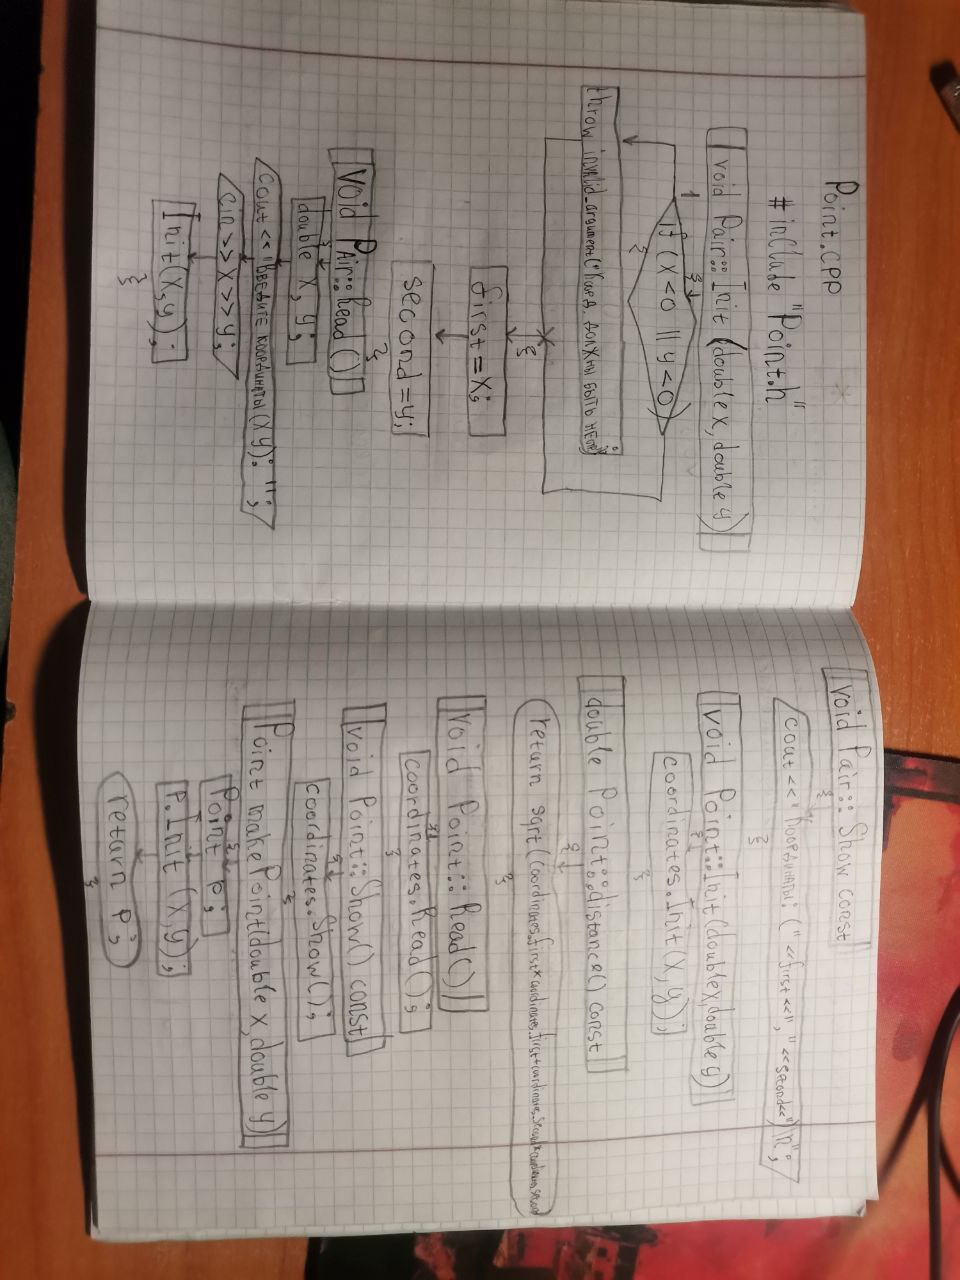 Point.cpp
#include "Point.h"
void Pair::Init(double x, double y)
{
if (x<0 || y<0)
1
{
throw invalid_argument("Коорд. должны быть
}
first=x;
second=y;
}
void Pair::Read()
{
double x, y;
cout<<"Введите координаты (x y): ";
cin>>x>>y;
Init(x,y);
}
void Pair::Show const
{
cout<<"Координаты: ("<<first<<", "<<second<<")\n";
}
void Point::Init(double x, double y)
{
coordinates.Init(x,y);
}
double Point::distance() const
{
return sqrt(coordinates.first*coordinates.first+coordinates.second*coordinates.second
}
void Point::Read()
{
coordinates.Read();
}
void Point::Show() const
{
coordinates.Show();
}
Point makePoint(double x, double y)
{
Point p;
p.Init (x,y);
return p;
}